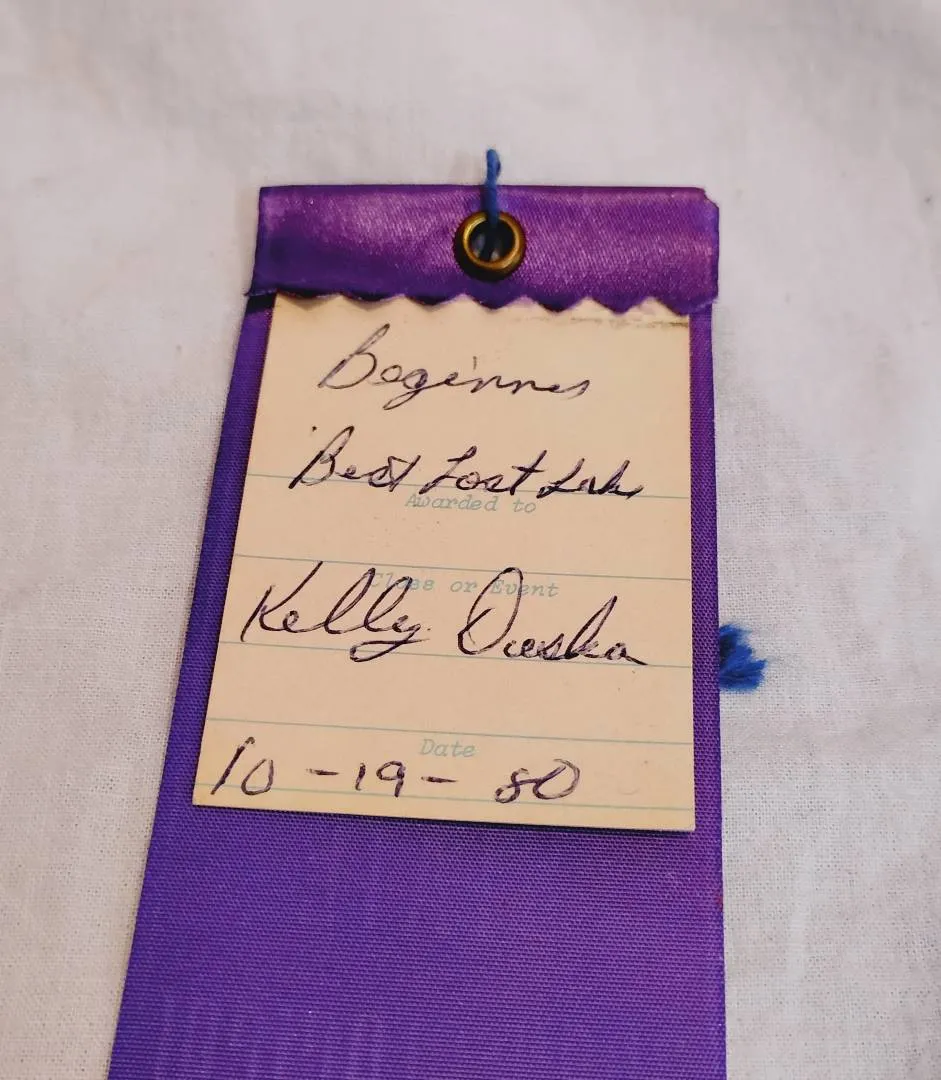 Beginner
Best Lost
Awarded to
Class or Event
Kelly
Date
10-19-80